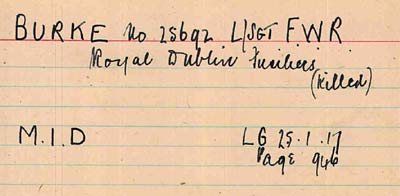 BURKE No 25692 L/SGT F.W.R
Royal Dublin Fusiliers
(Killed)
M.I.D LG 25.1.17
Page 946